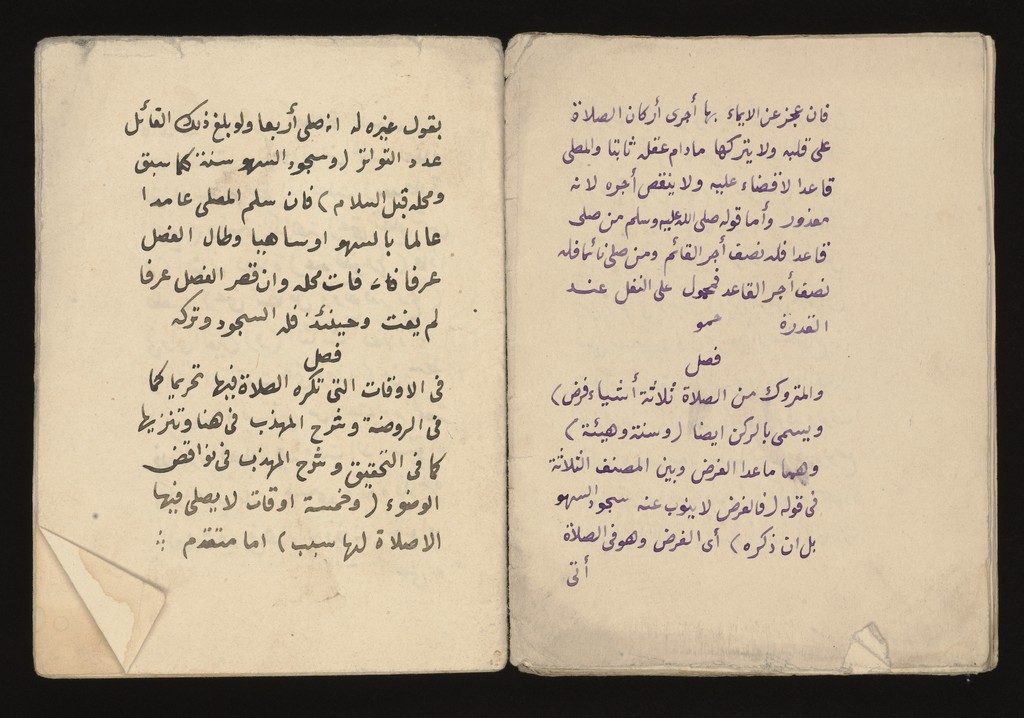 فان عجز عن الايماء بها أجرى أركان الصلاة
على قلبه ولا يتركها مادام عقله ثابتا والمصلى
قاعدا لاقضاء عليه ولا ينقص أجره لانه
معذور وأما قوله صلى الله عليه وسلم من صلى
قاعدا فله نصف أجر القائم ومن صلى نائما فله
نصف أجر القاعد فمحمول على النفل عند
القدرة
فصل
والمتروك من الصلاة ثلاثة أشياء فرض)
ويسمى بالركن ايضا (وسنة وهيئة)
وهما ماعدا الفرض وبين المصنف الثلاثة
فى قوله (فالفرض لا ينوب عنه سجود السهو
بل ان ذكره) أى الفرض وهو فى الصلاة
أتى
بقول غيره له انه صلى أربعا ولو بلغ ذلك القائل
عدد التواتر (وسجود السهو سنة كما سبق
ومحله قبل السلام) فان سلم المصلى عامدا
عالما بالسهو او ساهيا وطال الفصل
عرفا فات محله وان قصر الفصل عرفا
لم يفت وحينئذ فله السجود وتركه
فصل
فى الاوقات التى تكره الصلاة فيها تحريما كما
فى الروضة وشرح المهذب فى هنا وتنزيها
كما فى التحقيق وشرح المهذب فى نواقض
الوضوء (وخمسة اوقات لا يصلى فيها
الا صلاة لها سبب) اما متقدم